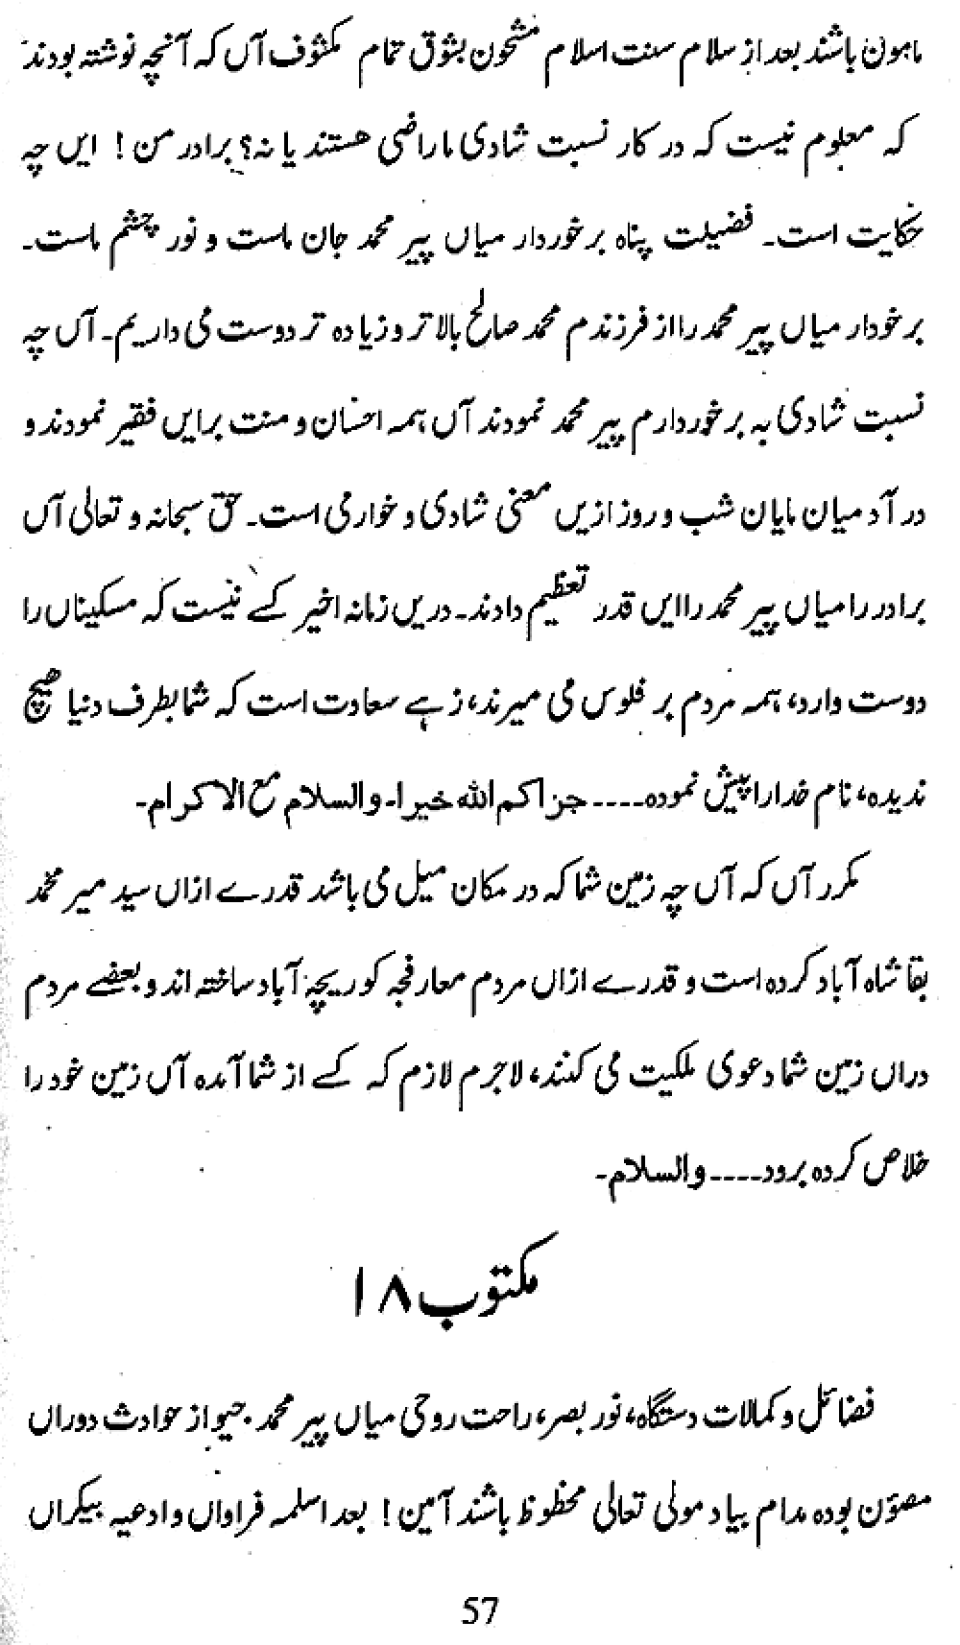 ماہون باشند بعد از سلام سنت اسلام مشحون بشوق تمام مکثوف آں کہ آنچہ نوشتہ بودند
کہ معلوم نیست کہ در کار نسبت شادی ما راضی ھستند یا نہ؟ برادر من! ایں چہ
حکایت است۔ فضیلت پناہ برخوردار میاں پیر محمد جان ماست و نور چشم ماست۔
برخودار میاں پیر محمد را از فرزندم محمد صالح بالا تر و زیادہ تر دوست می داریم۔ آں چہ
نسبت شادی بہ برخوردارم پیر محمد نمودند آں ہمہ احسان و منت برایں فقیر نمودند و
در آد میان مایان شب و روز ازیں معنی شادی و خوارمی است۔ حق سبحانہ و تعالی آں
برادر را میاں پیر محمد را ایں قدر تعظیم دادند۔ دریں زمانہ اخیر کسے نیست کہ مسکیناں را
دوست وارد، ہمہ مردم بر فلوس می میرند، زہے سعادت است کہ شما بطرف دنیا ھیچ
ندیدہ، نام خدا را پیش نمودہ۔۔۔۔ جزاکم اللہ خیرا۔ والسلام مع الاکرام۔
مکرر آں کہ آں چہ زمین شما کہ در مکان میل می باشد قدرے ازاں سید میر محمد
بقا شاہ آباد کردہ است و قدرے ازاں مردم معارفجہ کوریچہ آباد ساختہ اند و بعضے مردم
دراں زمین شما دعوی ملکیت می کنند، لاجرم لازم کہ کسے از شما آمدہ آں زمین خود را
خلاص کردہ برود۔۔۔۔ والسلام۔
مکتوب ۱۸
فضائل و کمالات دستگاہ، نور بصر، راحت روحی میاں پیر محمد جیو از حوادث دوراں
مصؤن بودہ مدام بیاد مولی تعالی محظوظ باشند آمین! بعد اسلمہ فراواں و ادعیہ بیکراں
57